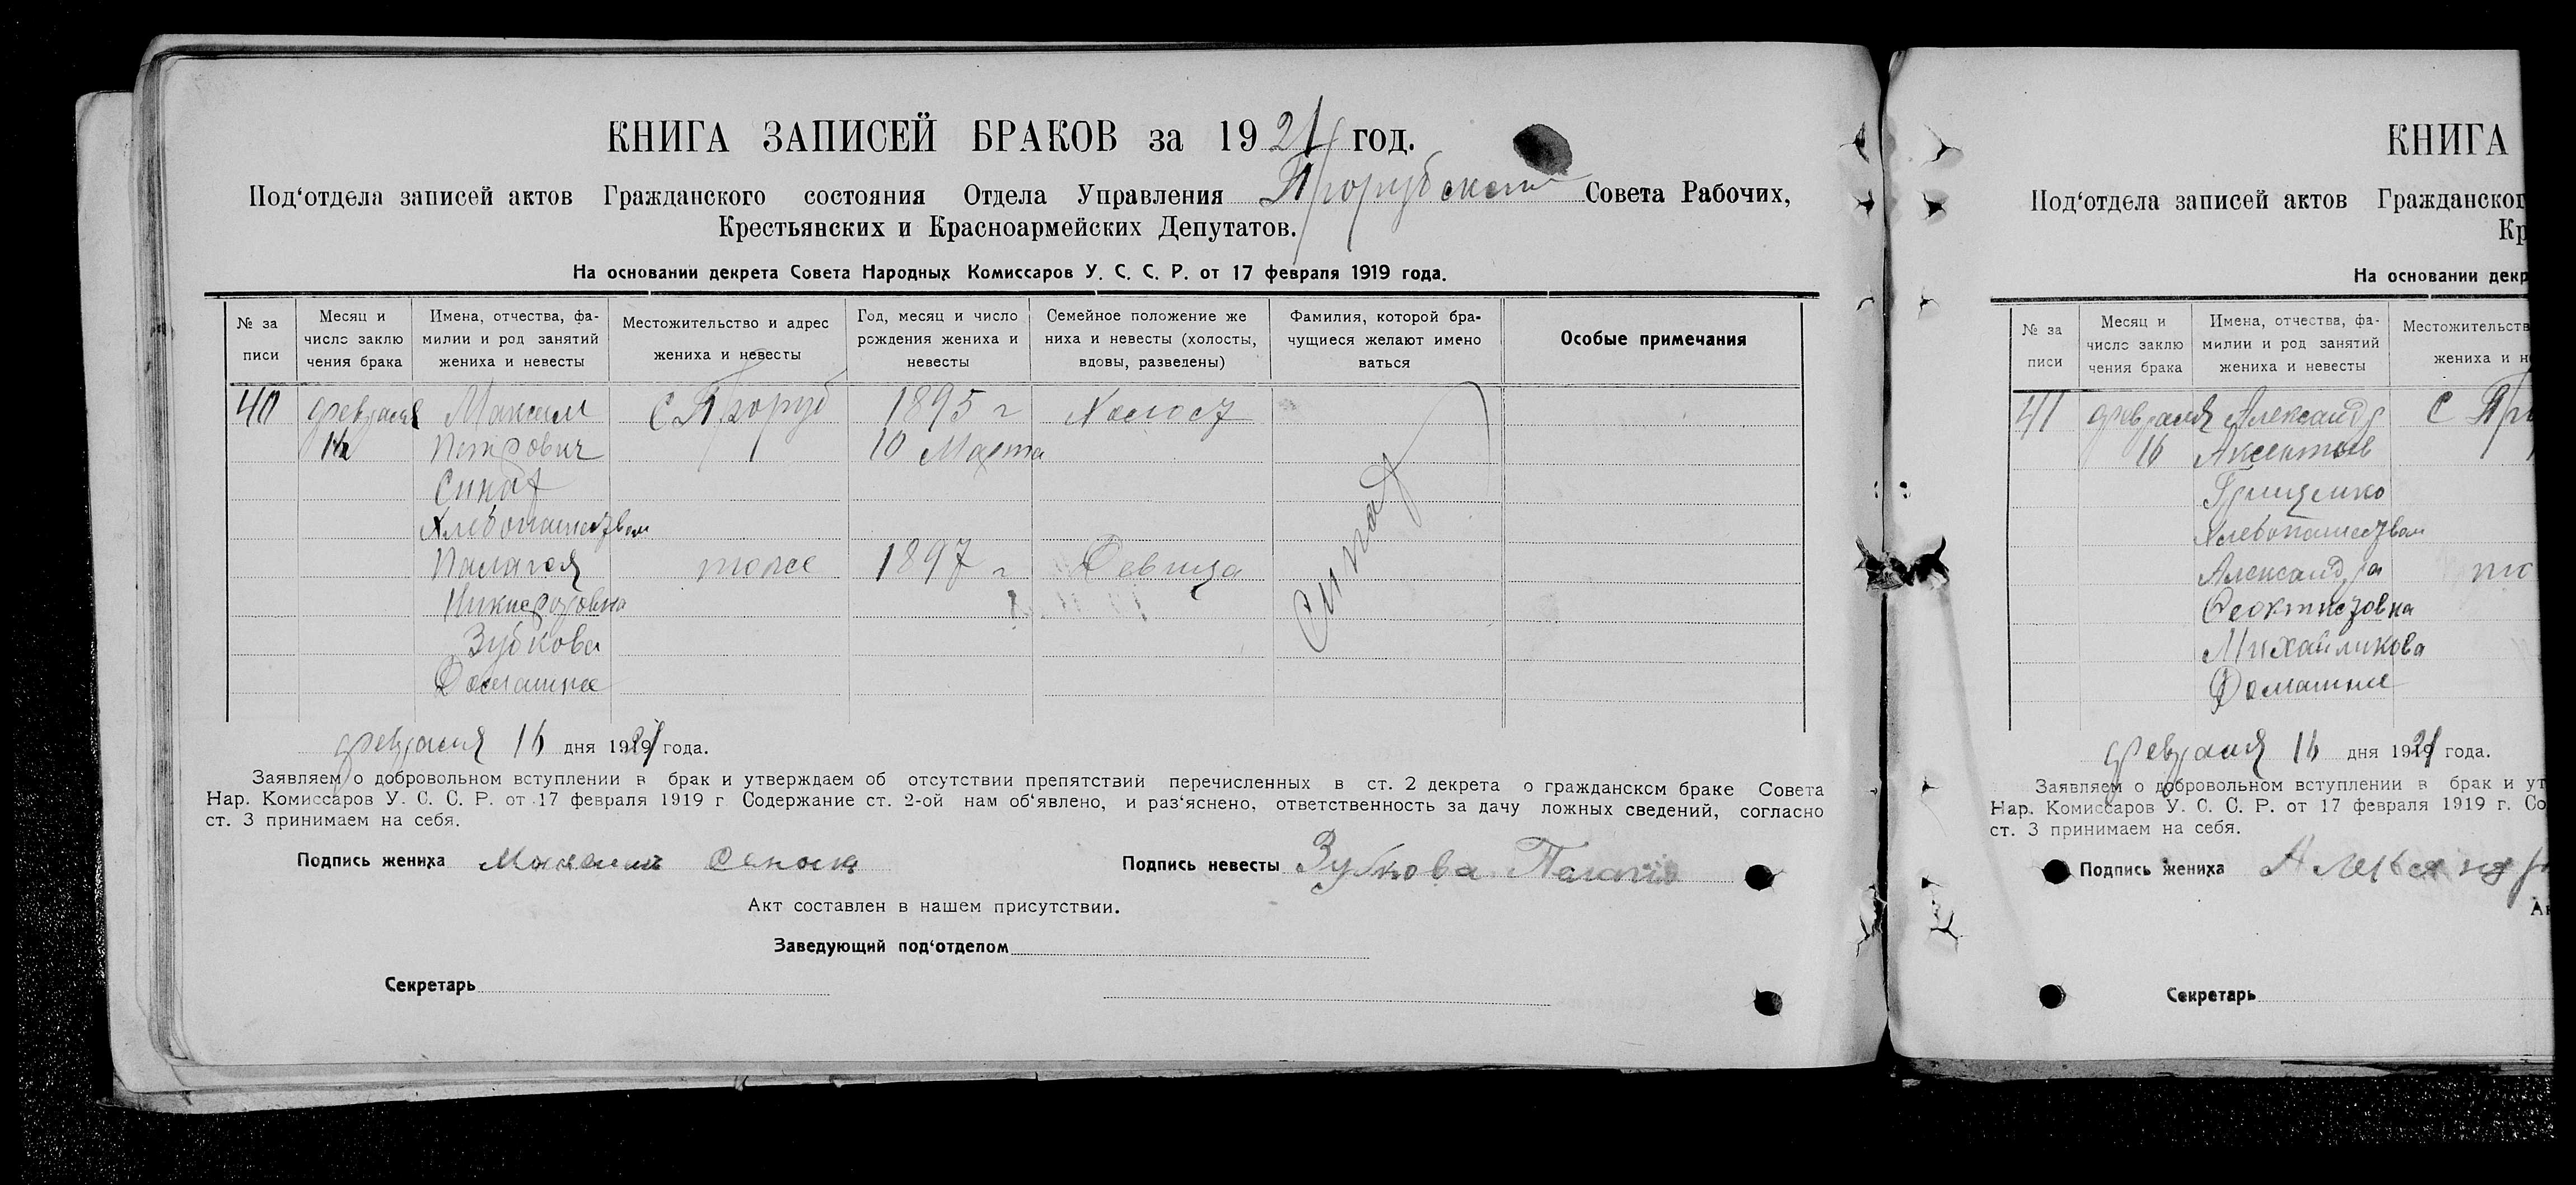 КНИГА ЗАПИСЕЙ БРАКОВ за 1921 год.
Под‘отдела записей актов Гражданского состояния Отдела Управления Прорубского Совета Рабочих,
Крестьянских и Красноармейских Депутатов.
На основании декрета Совета Народных Комиссаров У. С. С. Р. от 17 февраля 1919 года.
№ за
писи
Месяц и
число заклю
чения брака
Имена, отчества, фа-
милии и род занятий
жениха и невесты
Местожительство и адрес
жениха и невесты
Год, месяц и число
рождения жениха и
невесты
Семейное положение же
ниха и невесты (холосты,
вдовы, разведены)
Фамилия, которой бра-
чущиеся желают имено
ваться
Особые примечания
40 февраля Максим С Проруб 1895 г Холост
Петрович 10 Марта
Хлебопашеством
Палагея тоже 1897 г Девица
Никифоровна
Зубкова
Домашнее
февраля 16 дня 1921 года.
Заявляем о добровольном вступлении в брак и утверждаем об отсутствии препятствий перечисленных в ст. 2 декрета о гражданском браке Совета
Нар. Комиссаров У. С. С. Р. от 17 февраля 1919 г Содержание ст. 2-ой нам об‘явлено, и раз‘яснено, ответственность за дачу ложных сведений, согласно
ст. 3 принимаем на себя.
Подпись жениха Максим
Подпись невесты Зубкова
Акт составлен в нашем присутствии.
Заведующий под‘отделом
Секретарь
КНИГА
Под‘отдела записей актов Гражданског
Кр
На основании декр
№ за
писи
Месяц и
число заклю
чения брака
Имена, отчества, фа-
милии и род занятий
жениха и невесты
Местожительств
жениха и н
41 февраля Александр С Пр
16
Грищенко
Хлебопашеством
Александра
Феоктистовна
Михайликова
Домашнее
февраля 16 дня 1921 года.
Заявляем о добровольном вступлении в брак и ут
Нар. Комиссаров У. С. С. Р. от 17 февраля 1919 г. Со
ст. 3 принимаем на себя.
Подпись жениха
Ак
Секретарь